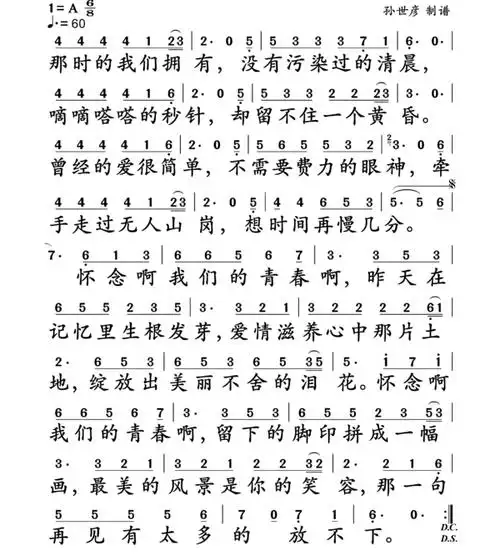 1=A 6/8
♩.=60
孙世彦 制谱
4 4 4 4 1 23 | 2· 0 5 | 5 3 3 3 7 1 | 6· 0 6 |
那时的我们拥有，没有污染过的清晨，
4 4 4 4 1 6 | 2· 0 5 | 5 3 3 2 2 23 | 2· 0 6 |
嘀嘀嗒嗒的秒针，却留不住一个黄昏。
曾经的爱很简单，不需要费力的眼神，牵
4 4 4 4 1 23 | 2· 0 5 | 6 5 6 1 2 3 | 5· 5 6 |
手走过无人山岗，想时间再慢几分。
7· 6 1 3 | 6 6 5 6 7 | 3· 3 5 3 |
怀念啊我们的青春啊，昨天在
6 5 5 2 3 5 | 3· 3 2 1 | 3 2 2 2 2 61 |
记忆里生根发芽，爱情滋养心中那片土
2· 6 5 3 | 6 5 3 6 5 35 | 5· i 7 i |
地，绽放出美丽不舍的泪花。怀念啊
6 6 5 6 7 | 3· 3 5 3 | 6 5 5 2 3 53 |
我们的青春啊，留下的脚印拼成一幅
3· 3 2 1 | 3 2 2 1 6 32 | 2· 1 2 1 |
画，最美的风景是你的笑容，那一句
5 5 5 5 6 | 1 7 5 5 7 | 6· 6· | 6· 0 :|
再见有太多的放不下。
D.C.
D.S.